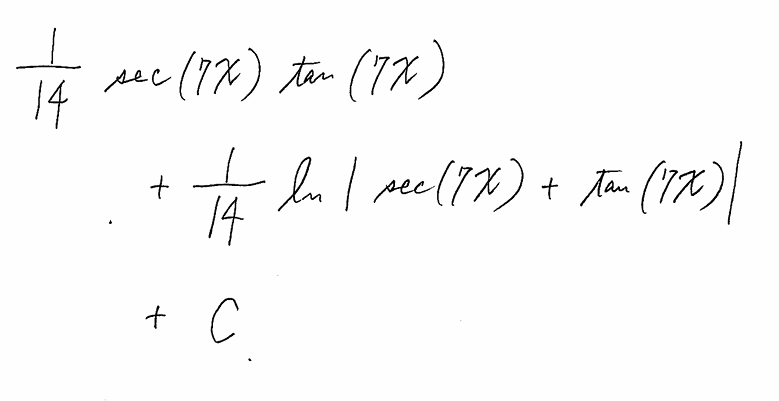 1/14 sec(7x) tan(7x)
+ 1/14 ln | sec(7x) + tan(7x)|
+ C